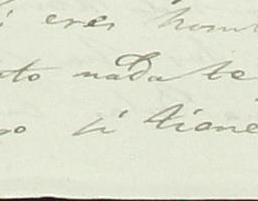 i eres hom
to nada te
go si tiene